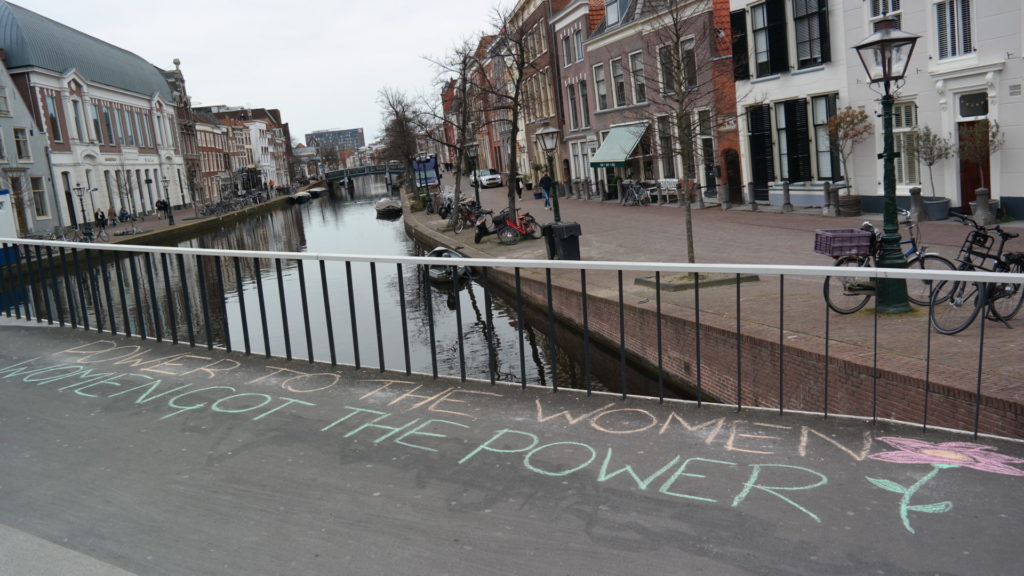 POWER TO THE WOMEN
WOMEN GOT THE POWER